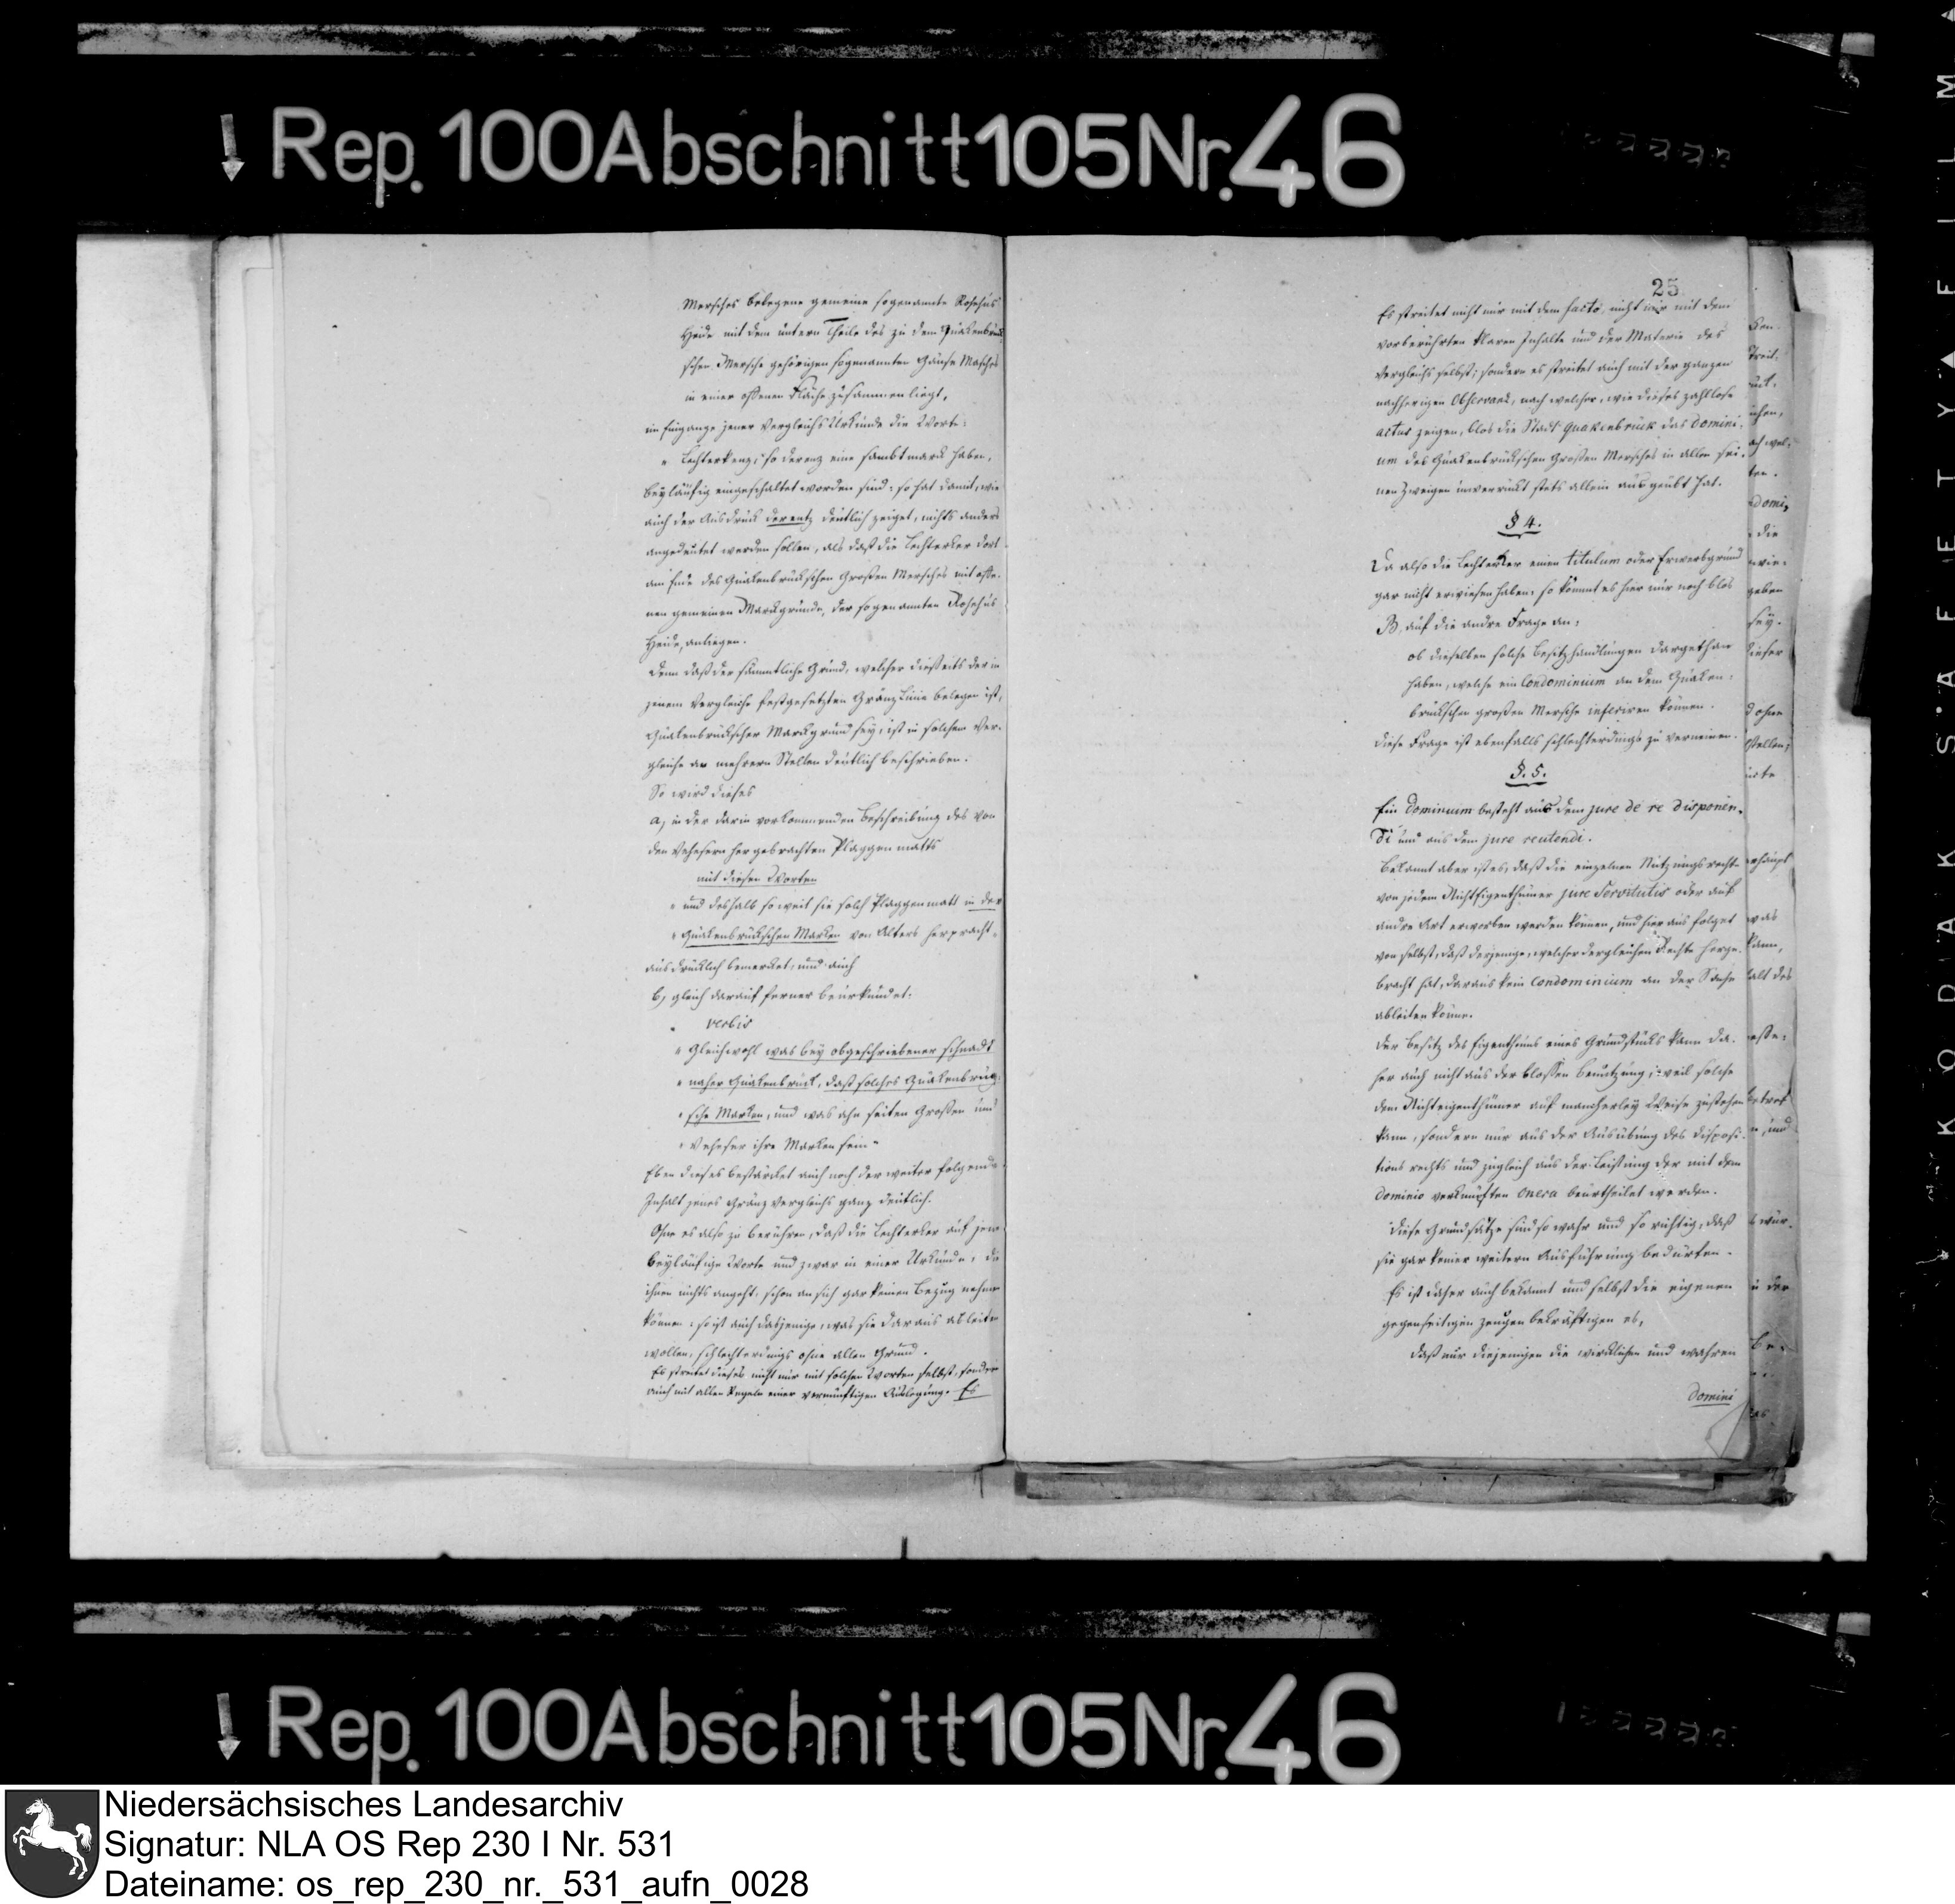 Rep. 100 Abschnitt 105 Nr. 46
Mersches belegene gemeine sogenannte Rosehus
Heide mit dem untern Theile des zu dem Quakenbrück
schen Mersche gehörigen sogenannten Gänse Masches
in einer offenen Fläche zusammen liegt,
im Eingange jener Vergleichs Urkunde die Worte:
„ Lechterkenz, so derenz eine sambtmark haben,
beyläufig eingeschaltet worden sind: so hat damit, wie
auch der Ausdruck derentz deutlich zeiget, nichts anders
angedeutet werden sollen, als daß die Lechterker dort
am Ende des Quakenbrückschen Großen Mersches mit offe-
nen gemeinen Markgründe, der sogenannten Rosehus
Heide, anliegen.
Denn daß der sämmtliche Grund, welcher diesseits der in
jenem Vergleiche festgesetzten Gränzlinie belegen ist,
Quakenbrückscher Markgrund sey, ist in solchem Ver-
gleiche an mehrern Stellen deutlich beschrieben.
So wird dieses
a, in der darin vorkommenden Beschreibung des von
den Vehsern hergebrachten Plaggenmatts
mit diesen Worten
„ und deshalb so weit sie solch Plaggenmatt in der
„ Quakenbrückschen Marken von Alters herpracht„
ausdrücklich bemerket; und auch
b, gleich darauf ferner beurkundet:
verbis
„ Gleichwohl was bey obgeschriebener schnadt
„ naher Quakenbrück, daß solches Quakenbrüg-
„ sche Marken, und was ahn seiten Großen und
„ Vehser ihre Marken sein„
Eben dieses bestärket auch noch der weiter folgende
Inhalt jenes Gränzvergleichs ganz deutlich.
Ohne es also zu berühren, daß die Lechterker auf jene
beyläufige Worte und zwar in einer Urkunde, die
ihnen nichts angeht, schon an sich gar keinen Bezug nehmen
können: so ist auch dasjenige, was sie daraus ableiten
wollen, schlechterdings ohne allen Grund.
Es streitet dieses nicht nur mit solchen Worten selbst, sondern
auch mit allen Regeln einer vernünftigen Auslegung. Es
25
Es streitet nicht nur mit dem facto, nicht nur mit dem
vorberührten klaren Inhalte und der Materie des
Vergleichs selbst; sondern es streitet auch mit der ganzen
nachherigen Observanz, nach welcher, wie dieses zahllose
actus zeigen, blos die Stadt Quakenbrück das Domini-
um des Quakenbrückschen Großen Mersches in allen sei-
nen Zweigen unverrückt stets allein ausgeübt hat.
§ 4.
Da also die Lechterker einen titulum oder Erwerbgrund
gar nicht erwiesen haben: so kömmt es hier nur noch blos
B, auf die andre Frage an:
ob dieselben solche Besitzhandlungen dargethan
haben, welche ein Condominium an dem Quaken-
brückschen großen Mersche inferiren können.
Diese Frage ist ebenfalls schlechterdings zu verneinen.
§. 5.
Ein Dominium besteht aus dem jure de re disponen-
di und aus dem jure reutendi.
Bekannt aber ist es, daß die einzelnen Nutzungsrechte
von jedem Nichteigenthümer jure Servitutis oder auf
andre Art erworben werden können, und hieraus folget
von selbst, daß derjenige, welcher dergleichen Rechte herge-
bracht hat, daraus kein Condominium an der Sache
ableiten könne.
Der Besitz des Eigenthums eines Grundstücks kann da-
her auch nicht aus der blossen Benutzung, weil solche
dem Nichteigenthümer auf mancherley Weise zustehen
kann, sondern nur aus der Ausübung des Disposi-
tions rechts und zugleich aus der Leistung der mit dem
Dominio verknüpften onera beurtheilet werden.
Diese Grundsätze sind so wahr und so richtig, daß
sie gar keiner weitern Ausführung bedürfen.
Es ist daher auch bekannt und selbst die eigenen
gegenseitigen Zeugen bekräftigen es,
daß nur diejenigen die wirklichen und wahren
Domini
Rep. 100 Abschnitt 105 Nr. 46
KODAK SAFETY FILM
Niedersächsisches Landesarchiv
Signatur: NLA OS Rep 230 I Nr. 531
Dateiname: os_rep_230_nr._531_aufn_0028